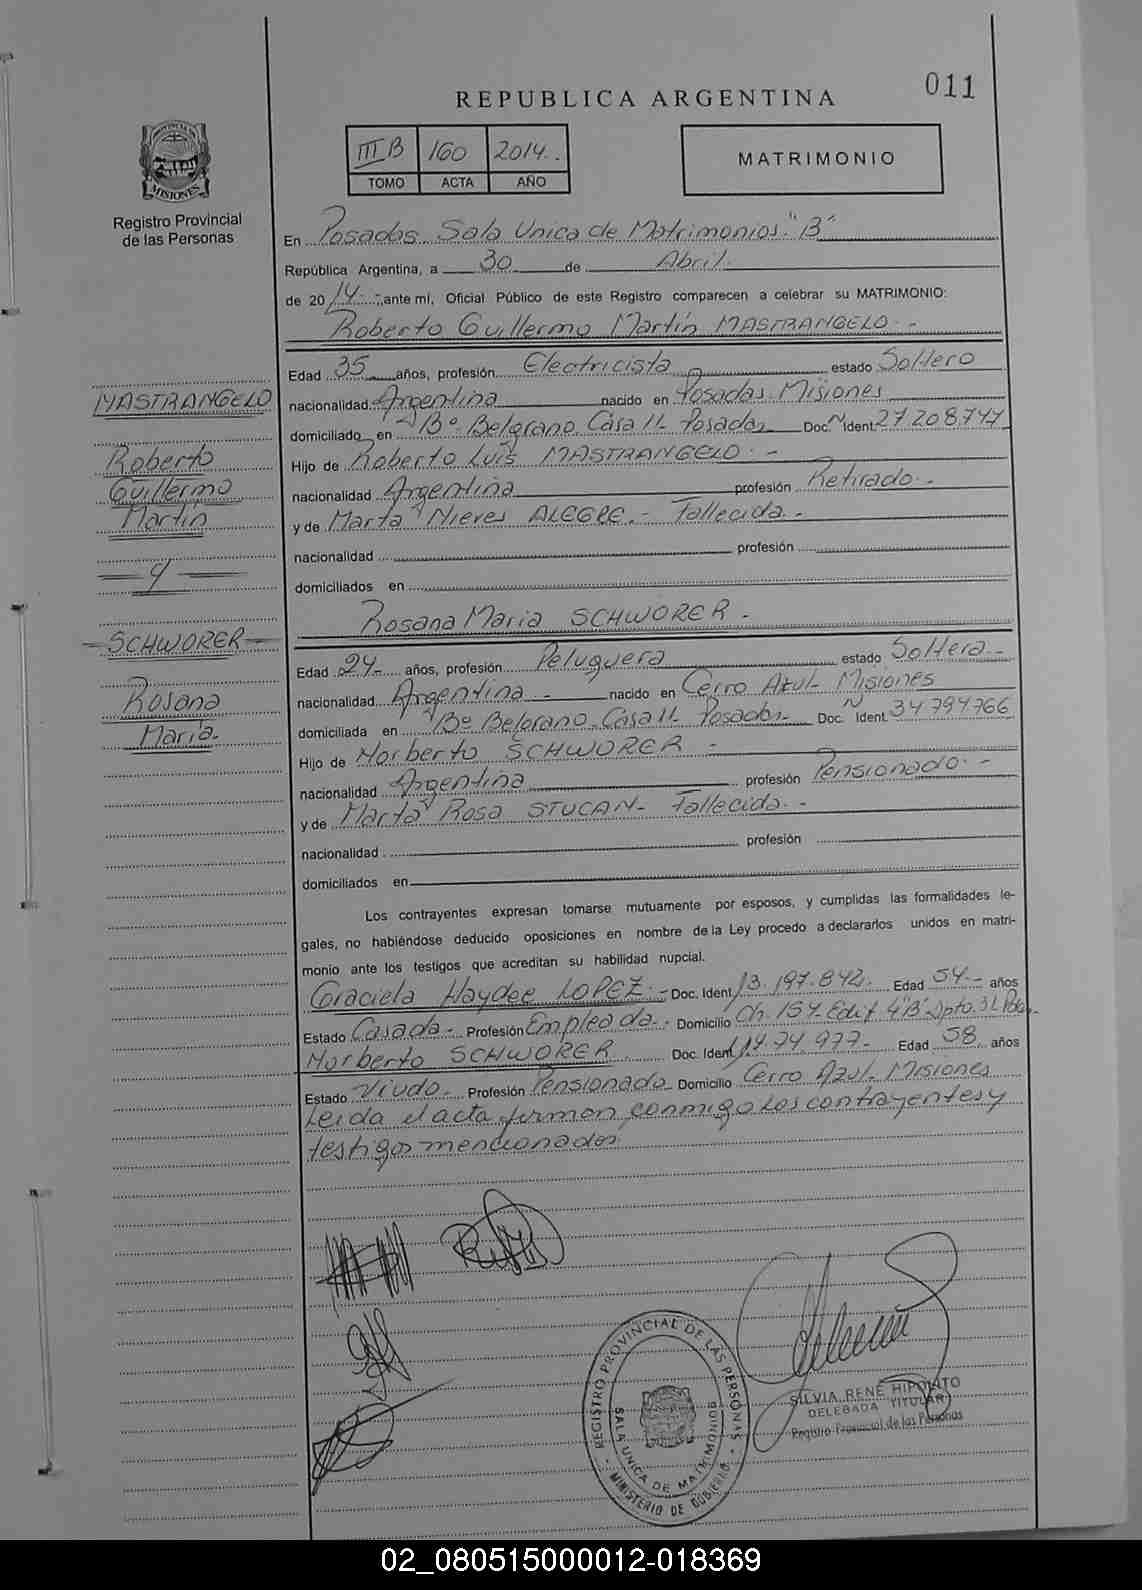 011
REPUBLICA ARGENTINA
PROVINCIA DE
MISIONES
Registro Provincial
de las Personas
III B 160 2014.
TOMO ACTA AÑO
MATRIMONIO
En Posadas Sala Unica de Matrimonios "B"
República Argentina, a 30 de Abril.
de 2014-, ante mí, Oficial Público de este Registro comparecen a celebrar su MATRIMONIO:
Roberto Guillermo Martín MASTRANGELO.-
Edad 35 años, profesión Electricista estado Soltero
nacionalidad Argentina nacido en Posadas Misiones
domiciliado en Bº Belgrano Casa 11 Posadas Doc. N Ident. 27 208.747
Hijo de Roberto Luis MASTRANGELO.-
nacionalidad Argentina profesión Retirado.-
y de Marta Nieves ALEGRE.- Fallecida.-
nacionalidad profesión
domiciliados en
MASTRANGELO
Roberto
Guillermo
Martín
— y —
SCHWORER
Rosana
Maria.
Rosana Maria SCHWORER -
Edad 24- años, profesión Peluquera estado Soltera.-
nacionalidad Argentina.- nacido en Cerro Azul- Misiones
domiciliada en Bº Belgrano-Casa 11 Posadas- Doc. N Ident. 34 794766
Hijo de Norberto SCHWORER -
nacionalidad Argentina profesión Pensionado.-
y de Marta Rosa STUCAN- Fallecida.-
nacionalidad profesión
domiciliados en
Los contrayentes expresan tomarse mutuamente por esposos, y cumplidas las formalidades le-
gales, no habiéndose deducido oposiciones en nombre de la Ley procedo a declararlos unidos en matri-
monio ante los testigos que acreditan su habilidad nupcial.
Graciela Haydee LOPEZ.- Doc. Ident. 13.197.842.- Edad 54.- años
Estado Casada.- Profesión Empleada.- Domicilio Ch. 157. Edif 4"B" Dpto.3
Norberto SCHWORER Doc. Ident. Edad 58 años
Estado Viudo- Profesión Pensionado Domicilio Cerro Azul. Misiones
Leida el acta firman conmigo los contrayentes y
testigos mencionados
REGISTRO PROVINCIAL DE LAS PERSONAS
SALA UNICA DE MATRIMONIOS
MINISTERIO DE GOBIERNO
SILVIA RENÉ HIPOLITO
DELEGADA TITULAR
Registro Provincial de las Personas
02_080515000012-018369